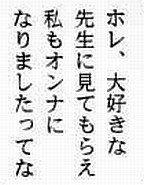 ホレ、大好きな
先生に見てもらえ
私もオンナに
なりましたってな